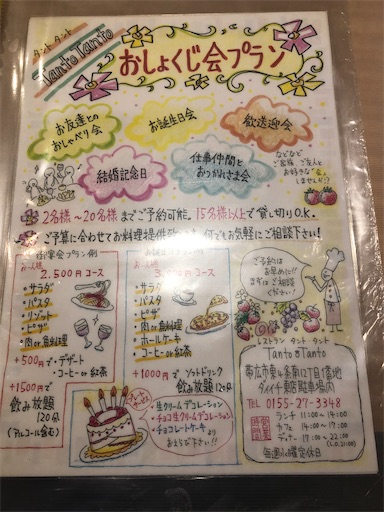 タント タント
Tanto Tanto
おしょくじ会プラン
お友達との
おしゃべり会
お誕生日会
歓送迎会
結婚記念日
仕事仲間と
おつかれさま会
などなど
ご家族、ご友人と
お好きな「会」
しませんか?
2名様〜20名様までご予約可能。15名様以上で貸し切りO.K.
ご予算に合わせてお料理提供致します。何でもお気軽にご相談下さい!
プラン例
2,500円コース
・サラダ
・パスタ
・リゾット
・ピザ
・肉or魚料理
+500円で・デザート
・コーヒーor紅茶
+1500円で
飲み放題
120分
(アルコール含む)
コース
・サラダ
・パスタ
・ピザ
・肉or魚料理
・ホールケーキ
・コーヒーor紅茶
+1000円で ソフトドリンク
飲み放題120分
・生クリームデコレーション
・チョコ生クリームデコレーション
・チョコレートケーキ
よりお選び下さい!!
ご予約は
お早めに!!
まずはご相談
ください!
レストラン タント タント
Tanto Tanto
帯広市東4条南12丁目1番地
ダイイチ東店駐車場内
TEL 0155-27-3348
営業時間
ランチ 11:00〜14:00
カフェ 14:00〜17:00
ディナー 17:00〜22:00
(L.O.21:00)
毎週火曜定休日